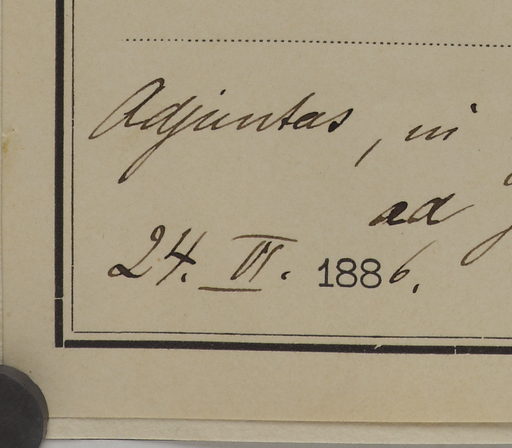 Adjuntas, in
ad
24. VI. 1886.